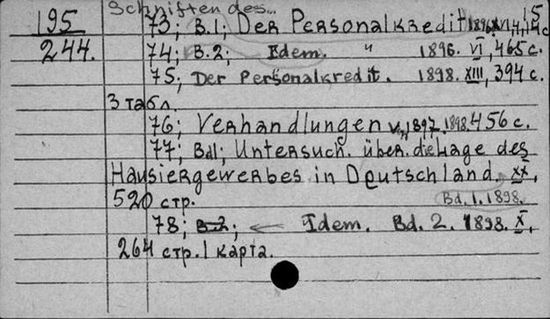 195 Schriften des...
73; B.1; Der Personalkredit 1896.
244. 74; B.2; Idem. " 1896. VI, 465 с.
75; Der Personalkredit. 1898. XIII, 394 с.
3 табл.
76; Verhandlungen v. 1897. 1898. 456 с.
77; Bd1; Untersuch. über. die Lage des
Hausiergewerbes in Deutschland. XX,
520 стр. Bd. 1. 1898.
78; B.2; ← Idem. Bd. 2. 1898. X,
264 стр. 1 карта.